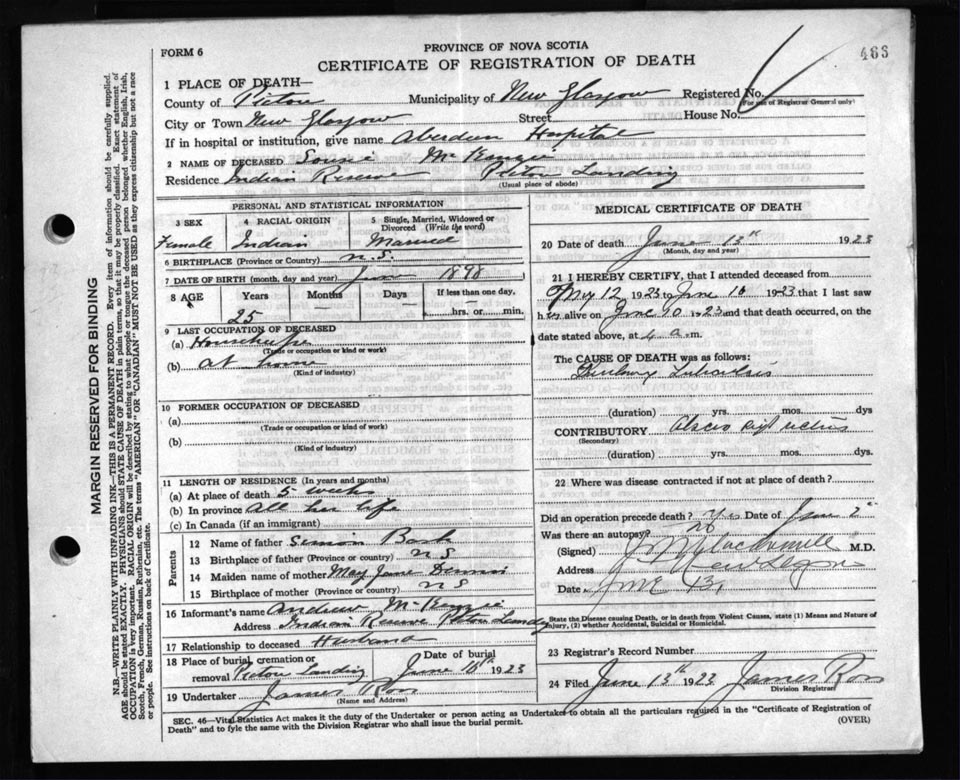 FORM 6
PROVINCE OF NOVA SCOTIA
CERTIFICATE OF REGISTRATION OF DEATH
463
1 PLACE OF DEATH—
County of Pictou Municipality of New Glasgow Registered No.
(For use of Registrar General only)
City or Town New Glasgow Street House No.
If in hospital or institution, give name Aberdeen Hospital
2 NAME OF DECEASED McKenzie
Residence Indian Reserve Pictou Landing
(Usual place of abode)
PERSONAL AND STATISTICAL INFORMATION
3 SEX 4 RACIAL ORIGIN 5 Single, Married, Widowed or Divorced (Write the word)
Female Indian Married
6 BIRTHPLACE (Province or Country) N.S.
7 DATE OF BIRTH (month, day and year) June 1898
8 AGE Years Months Days If less than one day,
25 — — hrs. or min.
9 LAST OCCUPATION OF DECEASED
(a) Housekeeper
(Trade or occupation or kind or work)
(b) At home
(Kind of industry)
10 FORMER OCCUPATION OF DECEASED
(a)
(Trade or occupation or kind of work)
(b)
(Kind of industry)
11 LENGTH OF RESIDENCE (In years and months)
(a) At place of death 5 weeks
(b) In province All her life
(c) In Canada (if an immigrant)
Parents
12 Name of father Simon
13 Birthplace of father (Province or country) N S
14 Maiden name of mother May Jane Dennis
15 Birthplace of mother (Province or country) N S
16 Informant's name Andrew McKenzie
Address Indian Reserve Pictou Landing
17 Relationship to deceased Husband
18 Place of burial, cremation or removal Pictou Landing Date of burial June 1923
19 Undertaker James Ross
(Name and Address)
MEDICAL CERTIFICATE OF DEATH
20 Date of death June 13th 1923
(Month, day and year)
21 I HEREBY CERTIFY, that I attended deceased from
May 12 1923 to June 1923 that I last saw
her alive on June 10 1923 and that death occurred, on the
date stated above, at 4 a. m.
The CAUSE OF DEATH was as follows:
Tuberculosis
(duration) yrs. mos. dys
CONTRIBUTORY
(Secondary)
(duration) yrs. mos. dys.
22 Where was disease contracted if not at place of death?
Did an operation precede death? Yes Date of June 2
Was there an autopsy? No
(Signed) M.D.
Address New Glasgow
Date June 13,
State the Disease causing Death, or in death from Violent Causes, state (1) Means and Nature of
Injury, (2) whether Accidental, Suicidal or Homicidal.
23 Registrar's Record Number
24 Filed June 13th 1923 James Ross
Division Registrar
SEC. 46—Vital Statistics Act makes it the duty of the Undertaker or person acting as Undertaker to obtain all the particulars required in the "Certificate of Registration of
Death" and to fyle the same with the Division Registrar who shall issue the burial permit.
(OVER)
MARGIN RESERVED FOR BINDING
N.B.—WRITE PLAINLY WITH UNFADING INK—THIS IS A PERMANENT RECORD. Every item of information should be carefully supplied.
AGE should be stated EXACTLY. PHYSICIANS should STATE CAUSE OF DEATH in plain terms, so that it may be properly classified. Exact statement of
OCCUPATION is very important. RACIAL ORIGIN will be described by stating to what people or tongue the deceased person belonged whether English, Irish,
Scotch, French, German, Russian, Ruthenian, etc. The terms "AMERICAN" OR "CANADIAN" MUST NOT BE USED as they express citizenship but not a race
or people. See instructions on back of Certificate.